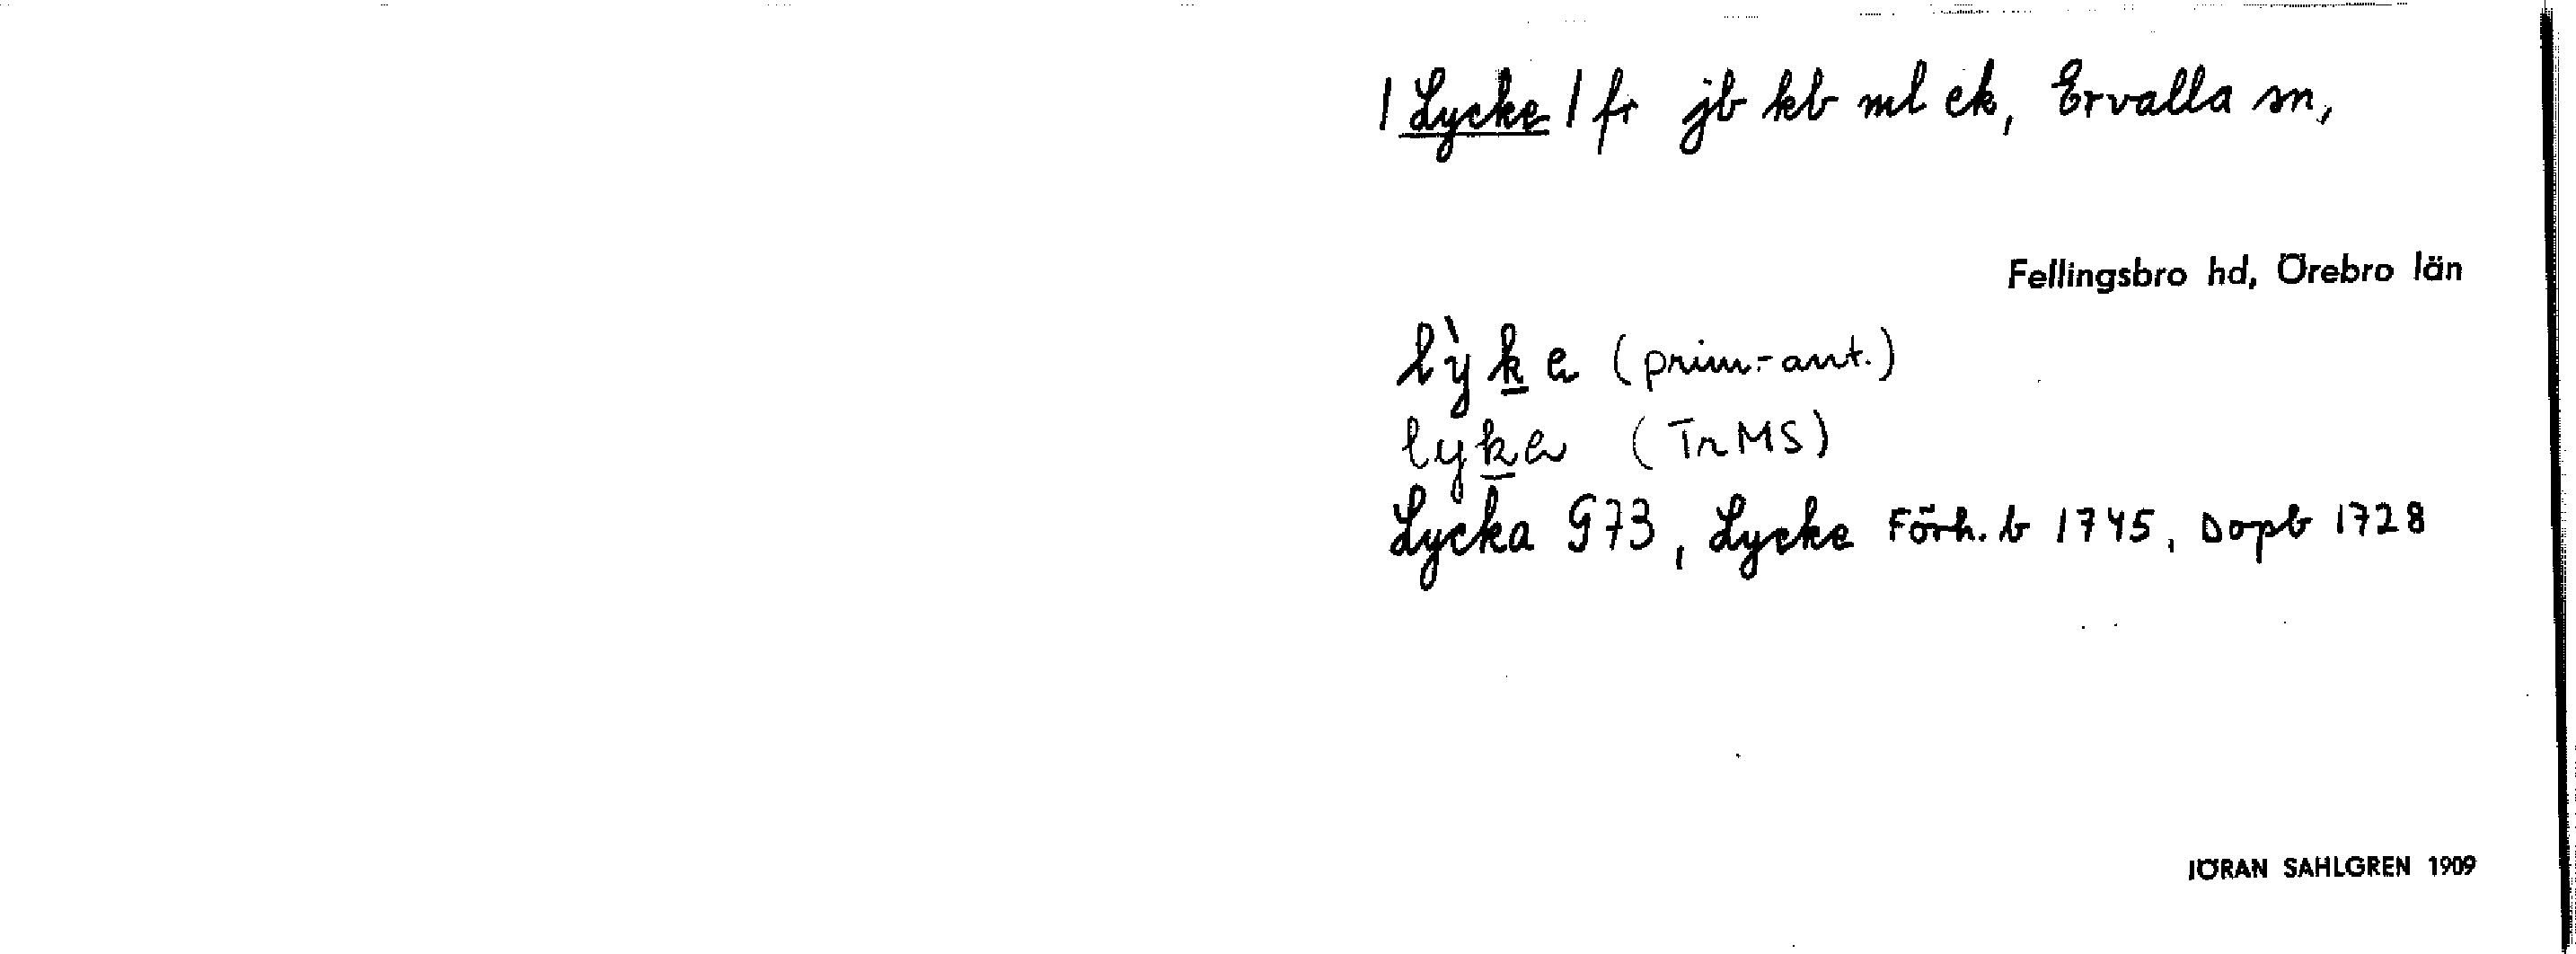 | Lycke | fr jb kb ml ek, Ervalla sn,
Fellingsbro hd, Örebro län
lỳke (prim.-ant.)
lyke (Tr MS)
Lycka G73, Lycke Förh. b 1745, Dopb 1728
JÖRAN SAHLGREN 1909